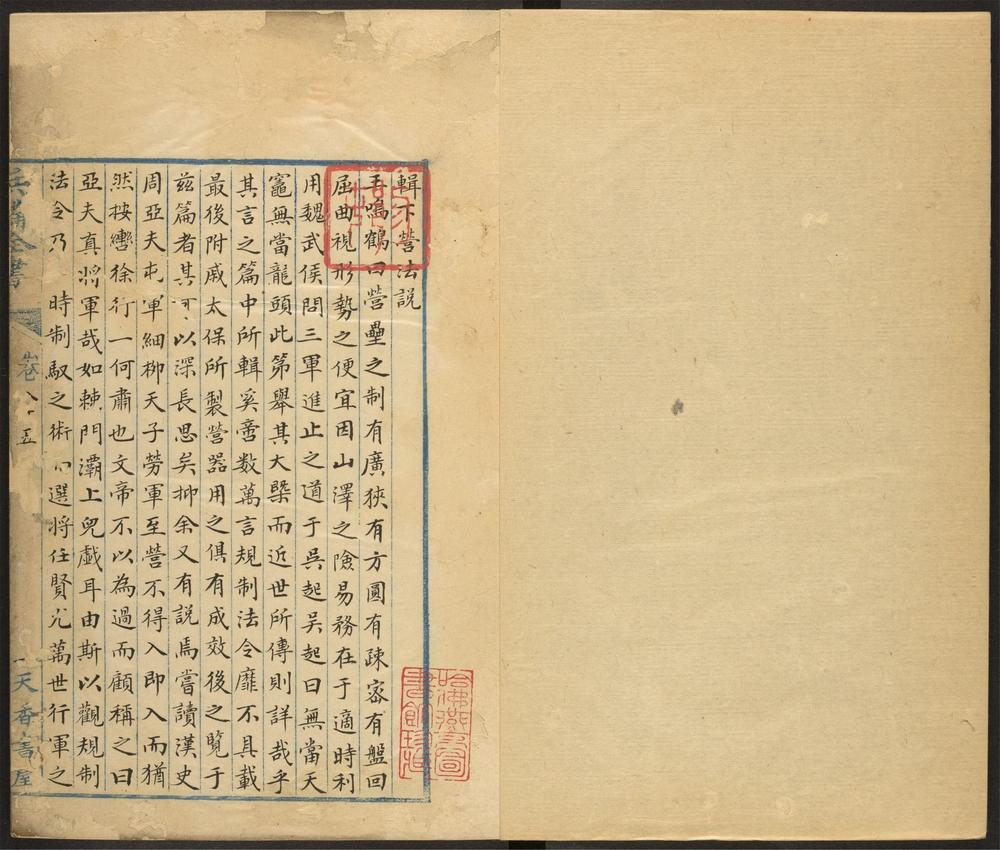 輯下營法說
王鳴鶴曰營壘之制有廣狹有方圓有疎密有盤回
屈曲視形勢之便宜因山澤之險易務在于適時利
用魏武侯問三軍進止之道于吳起吳起曰無當天
竈無當龍頭此第舉其大槩而近世所傳則詳哉乎
其言之篇中所輯奚啻数萬言規制法令靡不具載
最後附戚太保所製營器用之俱有成效後之覽于
兹篇者其可以深長思矣抑余又有說焉嘗讀漢史
周亞夫屯軍細栁天子勞軍至營不得入即入而猶
然按轡徐行一何肅也文帝不以為過而顧稱之曰
亞夫真將軍哉如棘門灞上兒戯耳由斯以觀規制
法令乃時制馭之術選将任賢尤萬世行軍之
全書
卷八十五
天香書屋
哈佛燕京圖書館珍藏